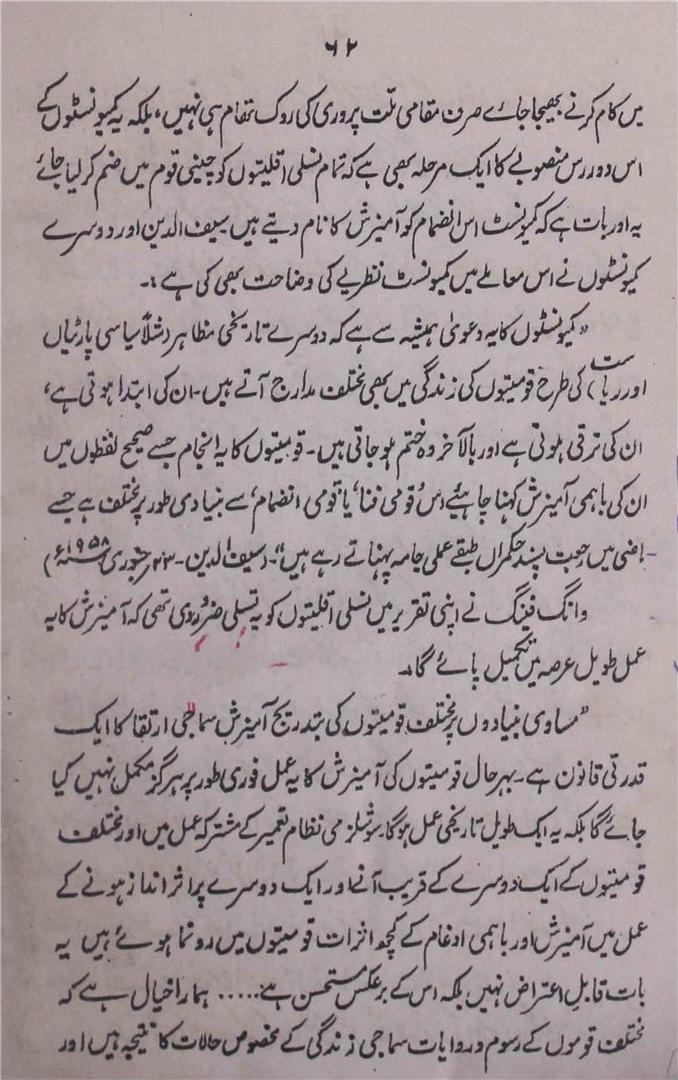 ۶۲
میں کام کرنے بھیجا جائے صرف مقامی ملّت پروری کی روک تھام ہی نہیں، بلکہ یہ کمیونسٹوں کے
اس دور رس منصوبے کا ایک مرحلہ بھی ہے کہ تمام نسلی اقلیتوں کو چینی قوم میں ضم کر لیا جائے
یہ اور بات ہے کہ کمیونسٹ اس انضمام کو آمیزش کا نام دیتے ہیں سیف الدین اور دوسرے
کمیونسٹوں نے اس معاملے میں کمیونسٹ نظریے کی وضاحت بھی کی ہے :۔
"کمیونسٹوں کا یہ دعویٰ ہمیشہ سے ہے کہ دوسرے تاریخی مظاہر (مثلاً سیاسی پارٹیاں
اور ریاست) کی طرح قومیتوں کی زندگی میں بھی مختلف مدارج آتے ہیں۔ ان کی ابتدا ہوتی ہے،
ان کی ترقی ہوتی ہے اور بالآخر وہ ختم ہو جاتی ہیں۔ قومیتوں کا یہ انجام جسے صحیح لفظوں میں
ان کی باہمی آمیزش کہنا چاہیئے اس 'قومی فنا' یا 'قومی انضمام' سے بنیادی طور پر مختلف ہے جسے
ماضی میں رجعت پسند حکمراں طبقے عملی جامہ پہناتے رہے ہیں"۔ (سیف الدین۔ ۲۳ جنوری ۱۹۵۸ء)
وانگ فینگ نے اپنی تقریر میں نسلی اقلیتوں کو یہ تسلی ضرور دی تھی کہ آمیزش کا یہ
عمل طویل عرصہ میں تکمیل پائے گا۔
"مساوی بنیادوں پر مختلف قومیتوں کی بتدریج آمیزش سماجی ارتقا کا ایک
قدرتی قانون ہے۔ بہرحال قومیتوں کی آمیزش کا یہ عمل فوری طور پر ہرگز مکمل نہیں کیا
جائے گا بلکہ یہ ایک طویل تاریخی عمل ہوگا۔ سوشلزمی نظام تعمیر کے مشترکہ عمل میں اور مختلف
قومیتوں کے ایک دوسرے کے قریب آنے اور ایک دوسرے پر اثر انداز ہونے کے
عمل میں آمیزش اور باہمی ادغام کے کچھ اثرات قومیتوں میں رونما ہوئے ہیں یہ
بات قابلِ اعتراض نہیں بلکہ اس کے برعکس مستحسن ہے..... ہمارا خیال ہے کہ
مختلف قوموں کے رسوم و روایات سماجی زندگی کے مخصوص حالات کا نتیجہ ہیں اور